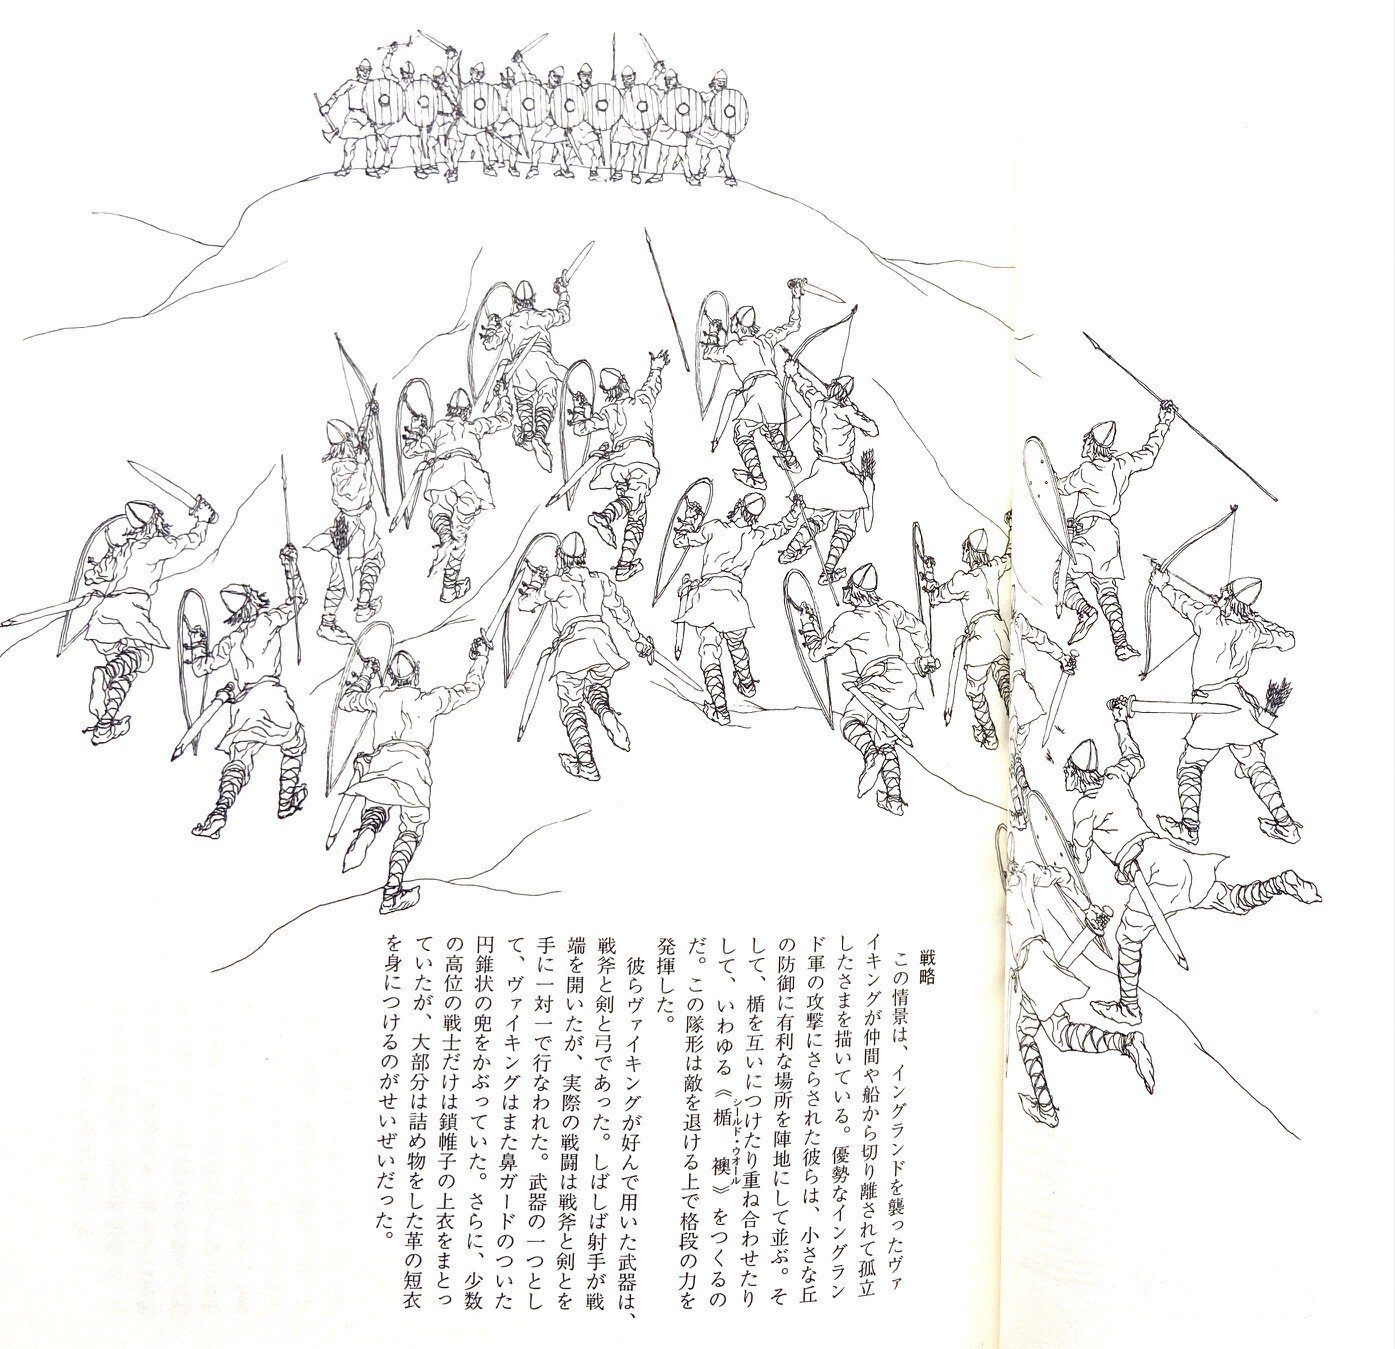 戦略
この情景は、イングランドを襲ったヴァ
イキングが仲間や船から切り離されて孤立
したさまを描いている。優勢なイングラン
ド軍の攻撃にさらされた彼らは、小さな丘
の防御に有利な場所を陣地にして並ぶ。そ
して、楯を互いにつけたり重ね合わせたり
シールド・ウオール
して、いわゆる《楯襖》をつくるの
だ。この隊形は敵を退ける上で格段の力を
発揮した。
彼らヴァイキングが好んで用いた武器は、
戦斧と剣と弓であった。しばしば射手が戦
端を開いたが、実際の戦闘は戦斧と剣とを
手に一対一で行なわれた。武器の一つとし
て、ヴァイキングはまた鼻ガードのついた
円錐状の兜をかぶっていた。さらに、少数
の高位の戦士だけは鎖帷子の上衣をまとっ
ていたが、大部分は詰め物をした革の短衣
を身につけるのがせいぜいだった。